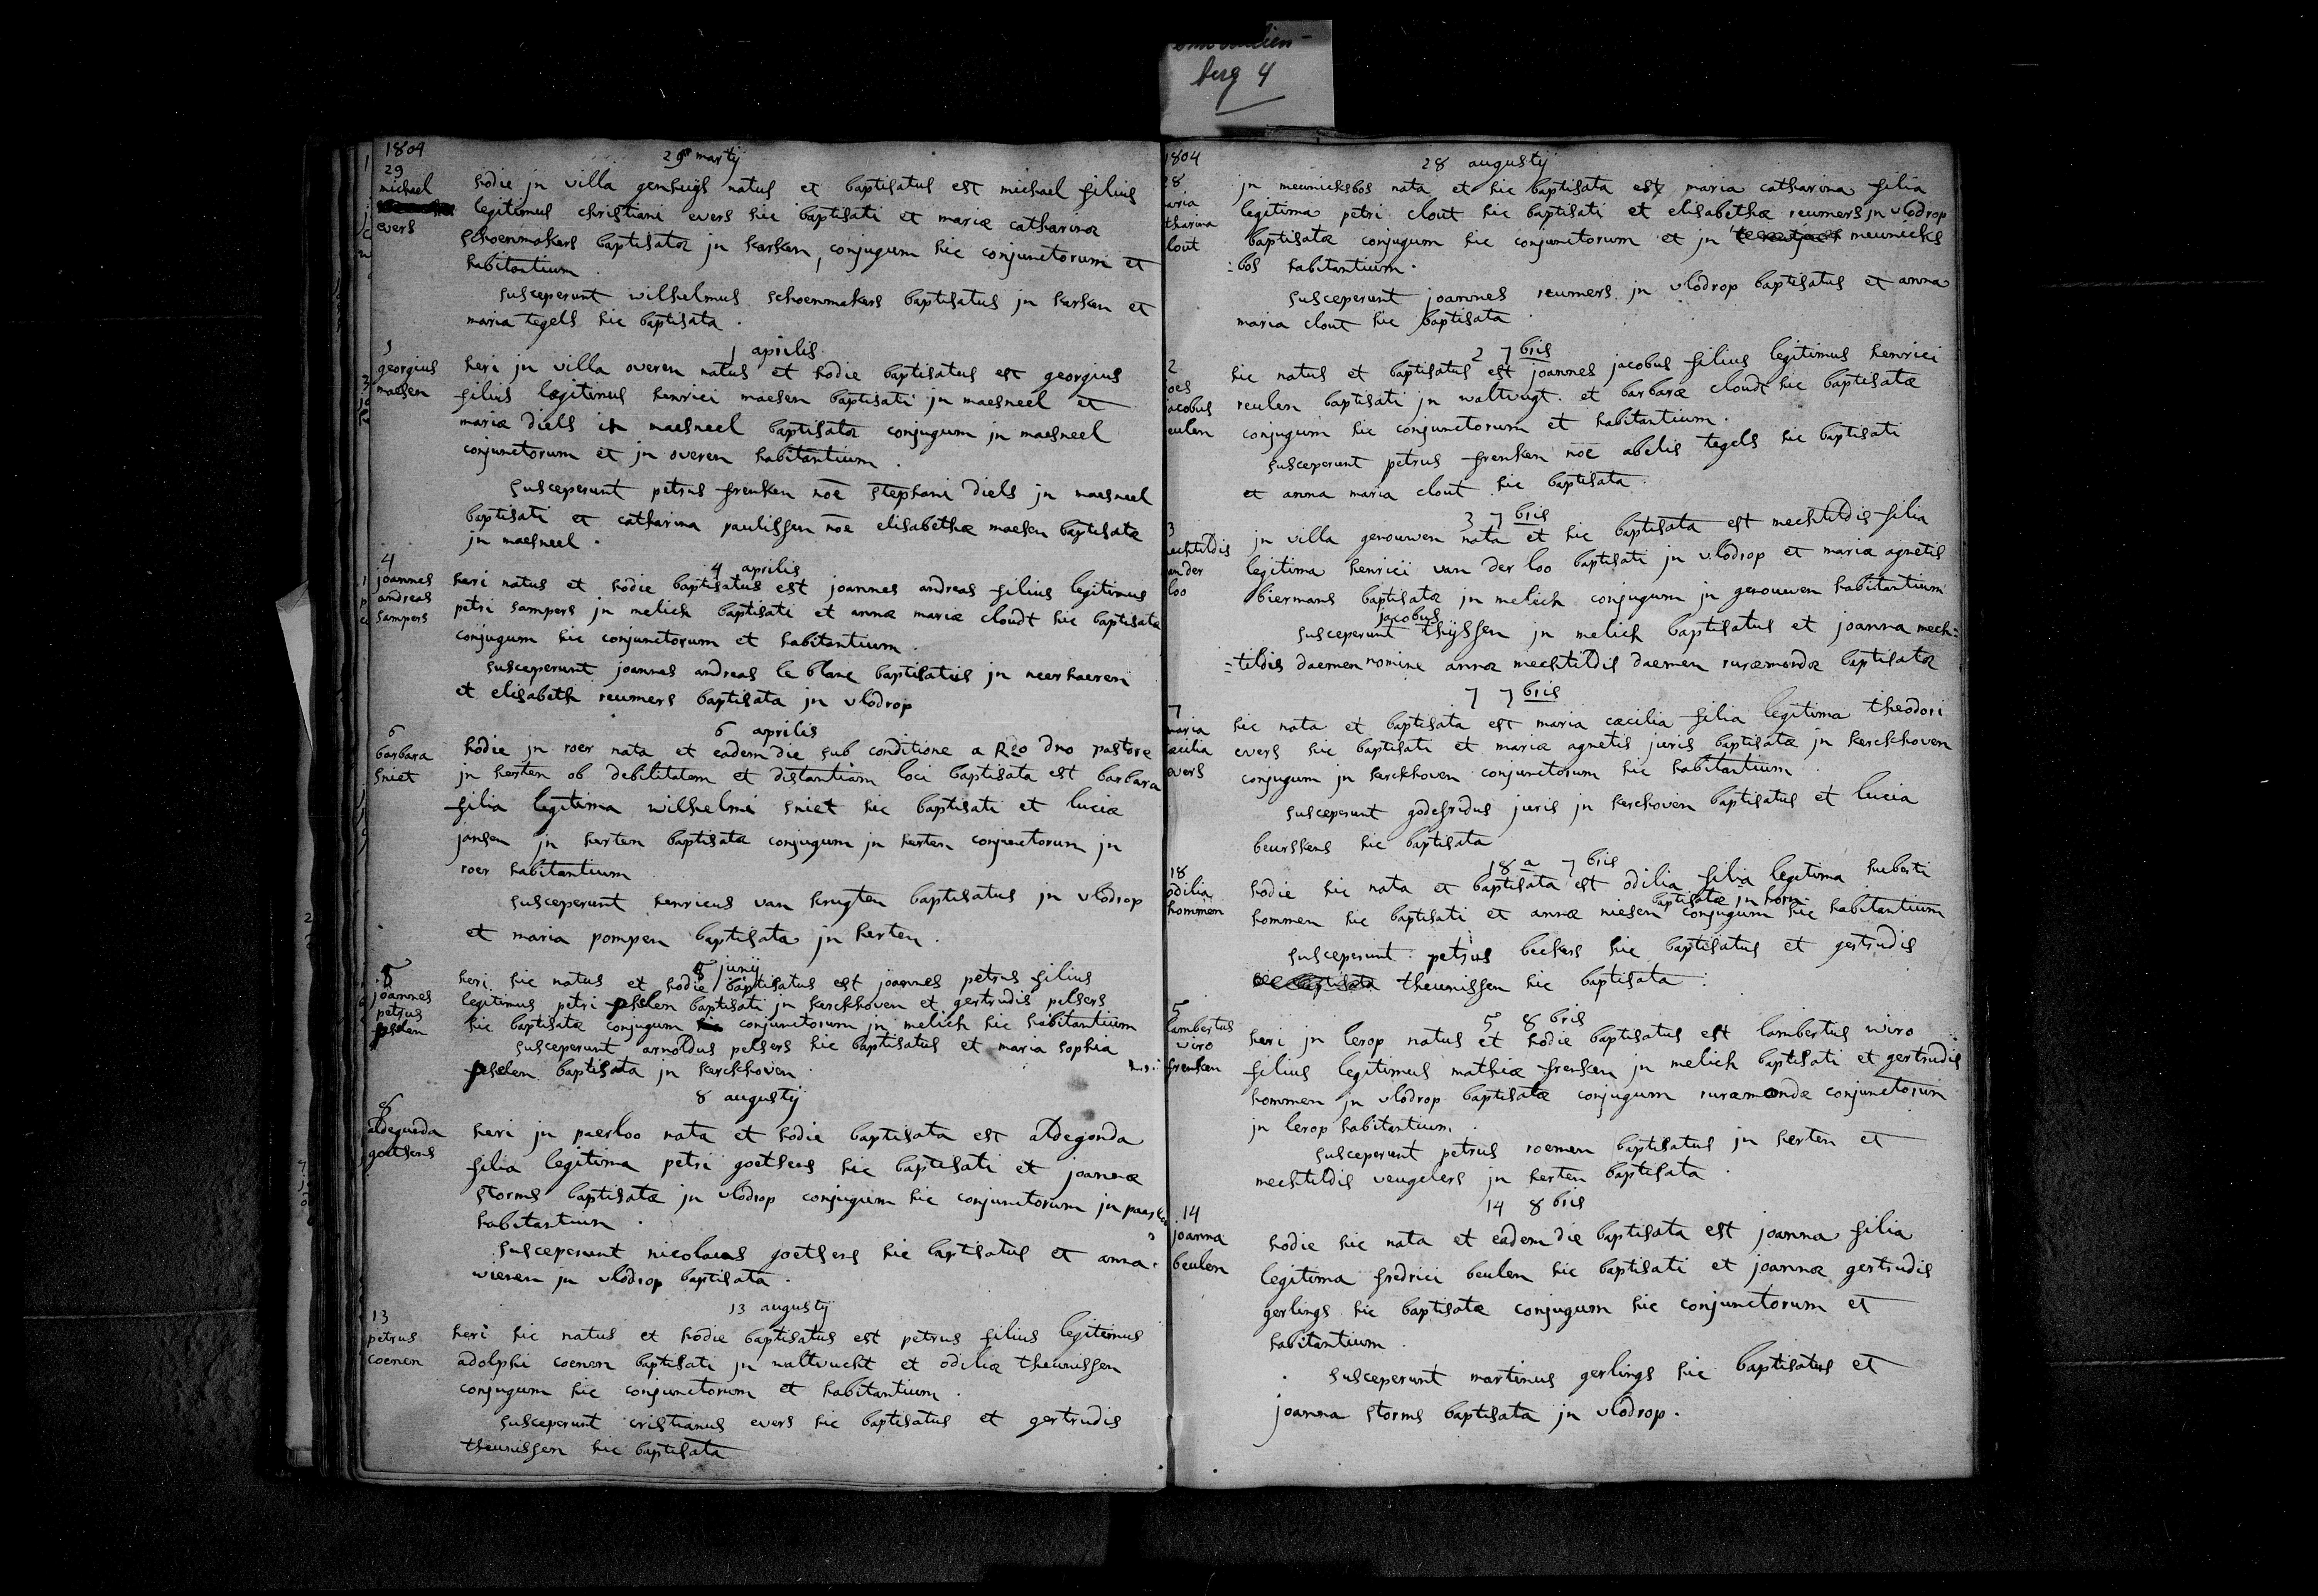 berg 4
1804
29 martij
29
michael
evers
hodie jn villa genhuijs natus et baptisatus est michael filius
legitimus christiani evers hic baptisati et mariæ catharinæ
schoenmakers baptisatæ jn karken, conjugum hic conjunctorum et
habitantium
susceperunt wilhelmus schoenmakers baptisatus jn karken et
maria tegels hic baptisata.
1 aprilis
georgius
maesen
heri jn villa overen natus et hodie baptisatus est georgius
filius legitimus henrici maesen baptisati jn maesneel et
mariæ diels in maesneel baptisatæ conjugum jn maesneel
conjunctorum et jn overen habitantium.
susceperunt petrus frenken noē stephani diels jn maesneel
baptisati et catharina paulissen noē elisabethæ maesen baptisatæ
jn maesneel.
4 aprilis
4
joannes
andreas
sampers
heri natus et hodie baptisatus est joannes andreas filius legitimus
petri sampers jn melick baptisati et annæ mariæ cloudt hic baptisatæ
conjugum hic conjunctorum et habitantium.
susceperunt joannes andreas le blanc baptisatus jn neerhaeren
et elisabeth reumers baptisata jn vlodrop
6 aprilis
6
barbara
sniet
hodie jn roer nata et eadem die sub conditione a Rdo dno pastore
jn herten ob debilitatem et distantiam loci baptisata est barbara
filia legitima wilhelmi sniet hic baptisati et luciæ
jansen jn herten baptisatæ conjugum jn herten conjunctorum jn
roer habitantium
susceperunt henricus van krugten baptisatus jn vlodrop
et maria pompen baptisata jn herten.
8 junij
8
joannes
petrus
heri hic natus et hodie baptisatus est joannes petrus filius
legitimus petri baptisati jn kerckhoven et gertrudis pelsers
hic baptisatæ conjugum conjunctorum jn melick hic habitantium
susceperunt arnoldus pelsers hic baptisatus et maria sophia
baptisata jn kerckhoven.
8 augustij
8
aldegunda
goetsens
heri jn paerloo nata et hodie baptisata est aldegonda
filia legitima petri goetsens hic baptisati et joannæ
storms baptisatæ jn vlodrop conjugum hic conjunctorum jn paerloo
habitantium.
susceperunt nicolaus goetsens hic baptisatus et anna
wienen jn vlodrop baptisata.
13 augustij
13
petrus
coenen
heri hic natus et hodie baptisatus est petrus filius legitimus
adolphi coenen baptisati jn waltvucht et odiliæ theunissen
conjugum hic conjunctorum et habitantium.
susceperunt cristianus evers hic baptisatus et gertrudis
theunissen hic baptisata
1804
28 augustij
28
aria
tharina
lout
jn meunicksbos nata et hic baptisata est maria catharina filia
legitima petri clout hic baptisati et elisabethæ reumers jn vlodrop
baptisatæ conjugum hic conjunctorum et jn meunicks
=bos habitantium.
susceperunt joannes reumers jn vlodrop baptisatus et anna
maria clout hic baptisata.
2 7bris
2
oes
jacobus
eulen
hic natus et baptisatus est joannes jacobus filius legitimus henrici
reulen baptisati jn waltvugt. et barbaræ cloudt hic baptisatæ
conjugum hic conjunctorum et habitantium.
susceperunt petrus frenken noē abelis tegels hic baptisati
et anna maria clout hic baptisata.
3 7bris
3
echtildis
an der
loo
jn villa genouwen nata et hic baptisata est mechtildis filia
legitima henrici van der loo baptisati jn vlodrop et mariæ agnetis
biermans baptisatæ jn melick conjugum jn genouwen habitantium
susceperunt jacobus thijssen jn melick baptisatus et joanna mech=
=tildis daemen nomine annæ mechtildis daemen ruræmondæ baptisatæ
7 7bris
7
maria
cæcilia
evers
hic nata et baptisata est maria cæcilia filia legitima theodori
evers hic baptisati et mariæ agnetis juris baptisatæ jn kerckhoven
conjugum jn kerckhoven conjunctorum hic habitantium
susceperunt godefridus juris jn kerchoven baptisatus et lucia
beurskens hic baptisata
18a 7bris
18
odilia
hommen
hodie hic nata et baptisata est odilia filia legitima huberti
hommen hic baptisati et annæ niesen baptisatæ jn horn conjugum hic habitantium
susceperunt petrus beckers hic baptisatus et gertrudis
theunissen hic baptisata.
5 8bris
5
lambertus
wiro
frenken
heri jn lerop natus et hodie baptisatus est lambertus wiro
filius legitimus mathiæ frenken jn melich baptisati et gertrudis
hommen jn vlodrop baptisatæ conjugum ruræmondæ conjunctorum
jn lerop habitantium.
susceperunt petrus roemen baptisatus jn herten et
mechtildis veugelers jn herten baptisata.
14 8bris
14
joanna
beulen
hodie hic nata et eadem die baptisata est joanna filia
legitima fredrici beulen hic baptisati et joannæ gertrudis
gerlings hic baptisatæ conjugum hic conjunctorum et
habitantium.
susceperunt martinus gerlings hic baptisatus et
joanna storms baptisata jn vlodrop.